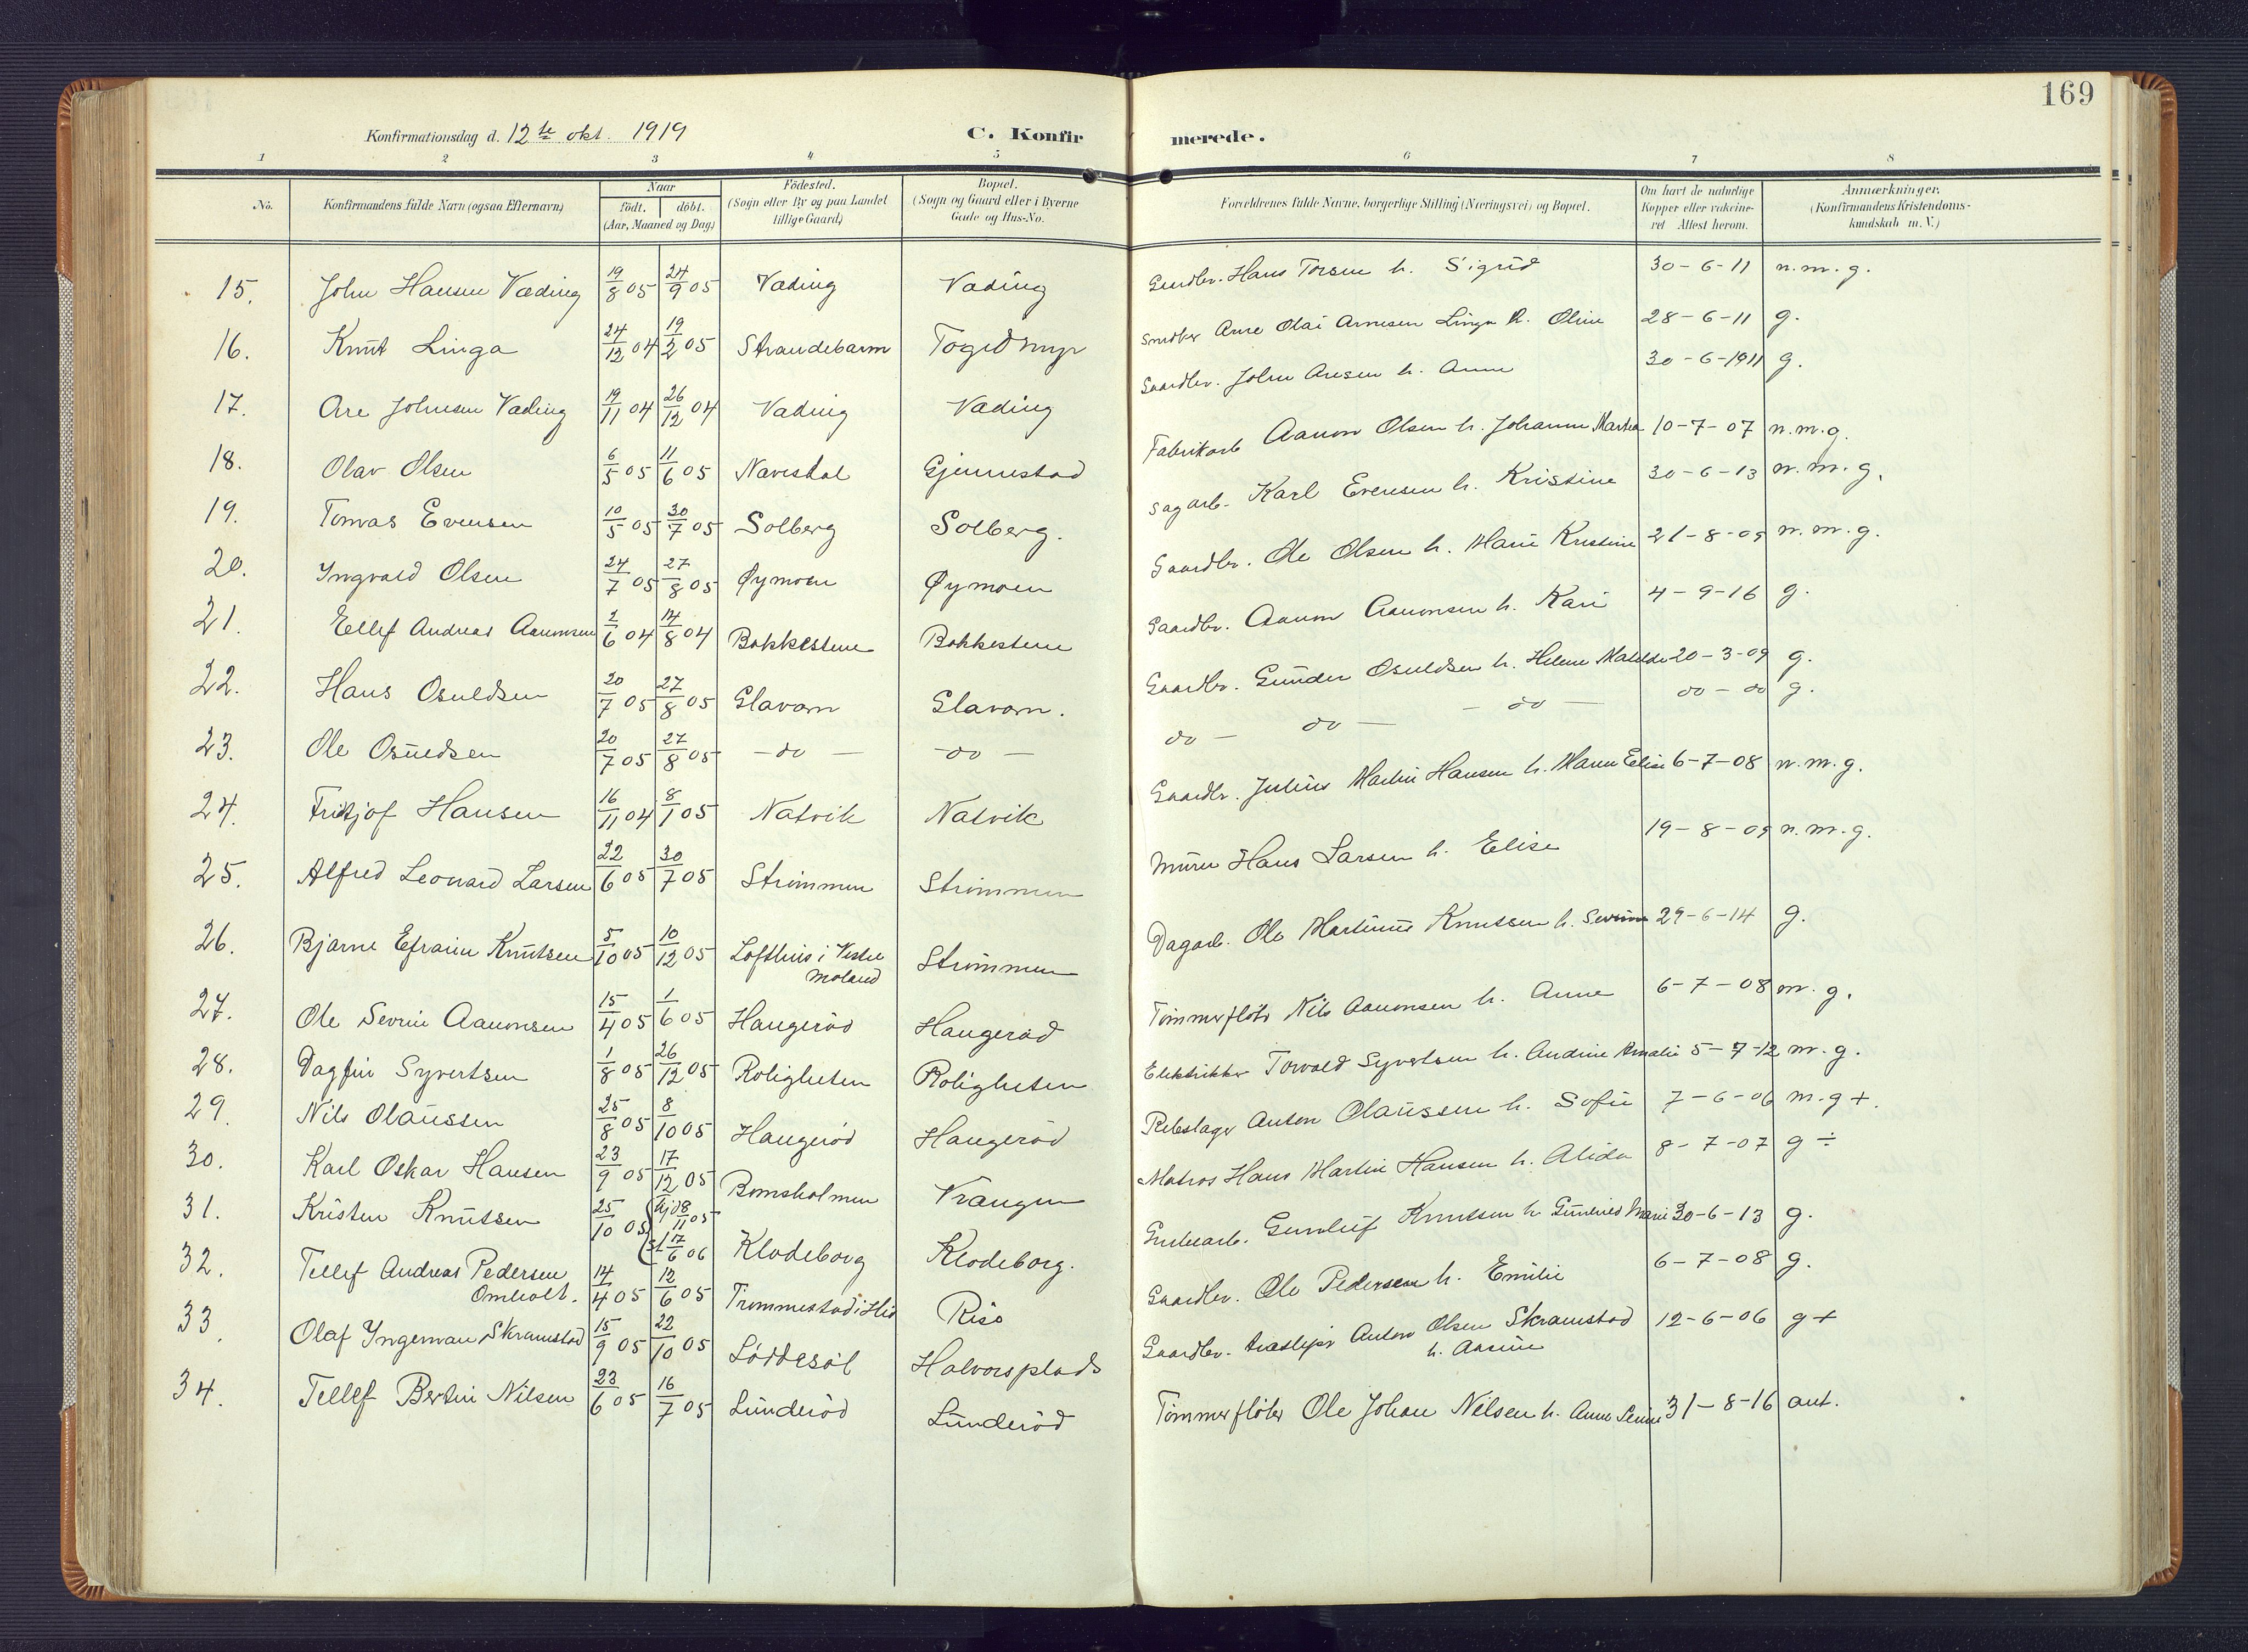 169
Konfirmationsdag d. 12te okt. 1919 C. Konfir merede.
1 2 3 4 5 6 7 8
No. Konfirmandens fulde Navn (ogsaa Efternavn) Naar födt. döbt. (Aar, Maaned og Dag) Födested. (Sogn eller By og paa Landet tillige Gaard) Bopæl. (Sogn og Gaard eller i Byerne Gade og Hus-No. Forældrenes fulde Navne, borgerlige Stilling (Næringsvei) og Bopæl. Om havt de naturlige Kopper eller vakcineret Attest herom. Anmærkninger. (Konfirmandens Kristendomskundskab m. V.)
15. John Hansen Væding 19/8 05 24/9 05 Væding Væding Hans Torsen h. Sigrid 30-6-11 n.m.g.
16. Knut Linga 24/12 04 19/2 05 Strandebarm Arne Olai Arnesen Linga h. Oline 28-6-11 g.
17. Are Johnsen Væding 19/11 04 26/12 04 Væding Væding Gaardbr. John Aresen h. Anne 30-6-1911 g.
18. Olav Olsen 6/5 05 11/6 05 Navestal Gjennestad Fabrikarb Aanon Olsen h. Johanne Marta 10-7-07 n.m.g.
19. Tomas Evensen 10/5 05 30/7 05 Solberg Solberg. Sagarb. Karl Evensen h. Kristine 30-6-13 n.m.g.
20. Yngvald Olsen 24/7 05 27/8 05 Øymoen Øymoen Gaardbr. Ole Olsen h. Marie Kristine 21-8-09 n.m.g.
21. Eellef Andreas Aanonsen 2/6 04 14/8 04 Bakkestene Bakkestene Gaardbr. Aanon Aanonsen h. Kari 4-9-16 g.
22. Hans Osuldsen 20/7 05 27/8 05 Glavarn Glavarn. Gaardbr. Gunder Osuldsen h. Helene Matilde 20-3-09 g.
23. Ole Osuldsen 20/7 05 27/8 05 -do- -do- do- do- -do- do-do g.
24. Fritjof Hansen 16/11 04 8/1 05 Natvik Natvik Gaardbr. Julius Martin Hansen h. Maren Elise 6-7-08 n.m.g.
25. Alfred Leonard Larsen 22/6 05 30/7 05 Strömmen Strömmen Murer Hans Larsen h. Elise 19-8-09 n.m.g.
26. Bjarne Efraim Knutsen 5/10 05 10/12 05 Lofthus i Vestre
Moland Strömmen Dagarb. Ole Martinus Knutsen h. Severine 29-6-14 g.
27. Ole Severin Aanonsen 15/4 05 1/6 05 Haugeröd Haugeröd Tömmerflöter Nils Aanonsen h. Anne 6-7-08 m.g.
28. Dagfin Syvertsen 1/8 05 26/12 05 Roligheten Roligheten Elektrikker Torvald Syvertsen h. Andrine Amalie 5-7-12 m.g.
29. Nils Olaussen 25/8 05 8/10 05 Haugeröd Haugeröd Rebslager Anton Olaussen h. Sofie 7-6-06 m.g+.
30. Karl Oskar Hansen 23/9 05 17/12 05 Bomsholmen Vrangen Matros Hans Martin Hansen h. Alida 8-7-07 g ÷
31. Kristen Knutsen 25/10 05 (hj 08/11 05
(st 17/6 06 Klodeborg Klodeborg. Grubearb. Gunleif Knutsen h Marie 30-6-13 g.
32. Tellef Andreas Pedersen
Omholt. 14/4 05 12/6 05 Trommestad i His Risö Gaardbr. Ole Pedersen h. Emilie 6-7-08 g.
33. Olaf Yngeman Skramstad 15/9 05 22/10 05 Løddesøl Halvorsplads Gaardbr. Anton Olsen Skramstad
h. Aasine 12-6-06 g+
34. Tellef Bertin Nilsen 23/6 05 16/7 05 Lunderöd Lunderöd Tömmerflöter Ole Johan Nilsen h. Anne 31-8-16 ant.